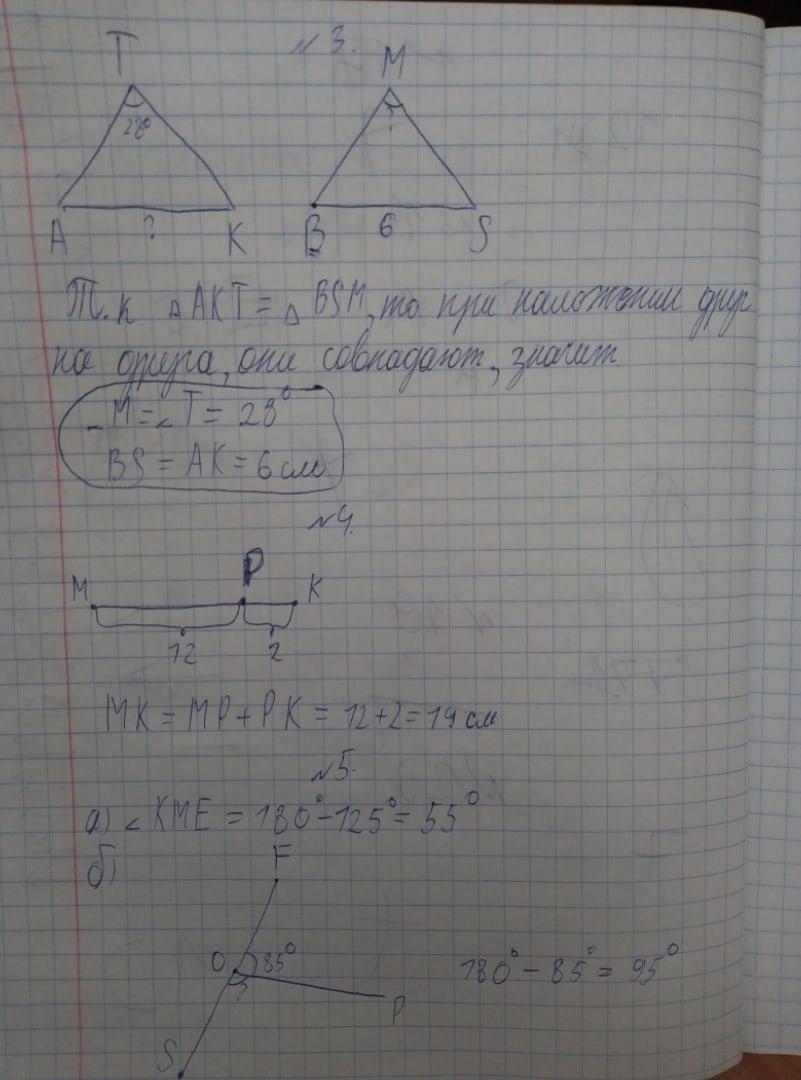 №3.
T M
28° ?
A ? K B 6 S
Т.к. △AKT = △BSM, то при наложении друг
на друга, они совпадают, значит
∠M = ∠T = 28°
BS = AK = 6 см
№4.
M P K
12 2
MK = MP + PK = 12+2=14 см
№5.
а) ∠KME = 180° - 125° = 55°
б)
F
O 85° 180° - 85° = 95°
?
P
S